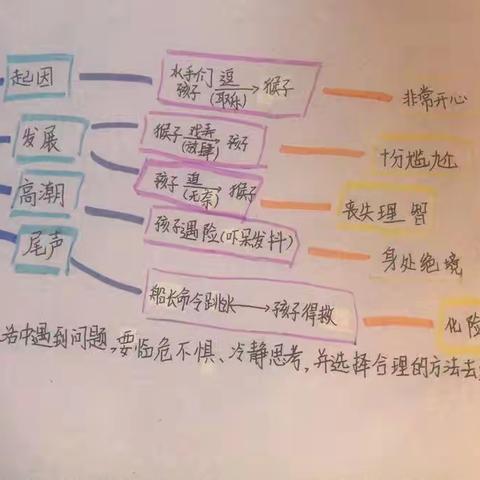 起因
水手们 逗 猴子
孩子 (取乐)
非常开心
发展
猴子 戏弄 孩子
(放肆)
十分尴尬
高潮
孩子 追 猴子
(无奈)
丧失理智
尾声
孩子遇险(吓呆发抖)
身处绝境
船长命令跳水 → 孩子得救
化险
活中遇到问题,要临危不惧、冷静思考,并选择合理的方法去